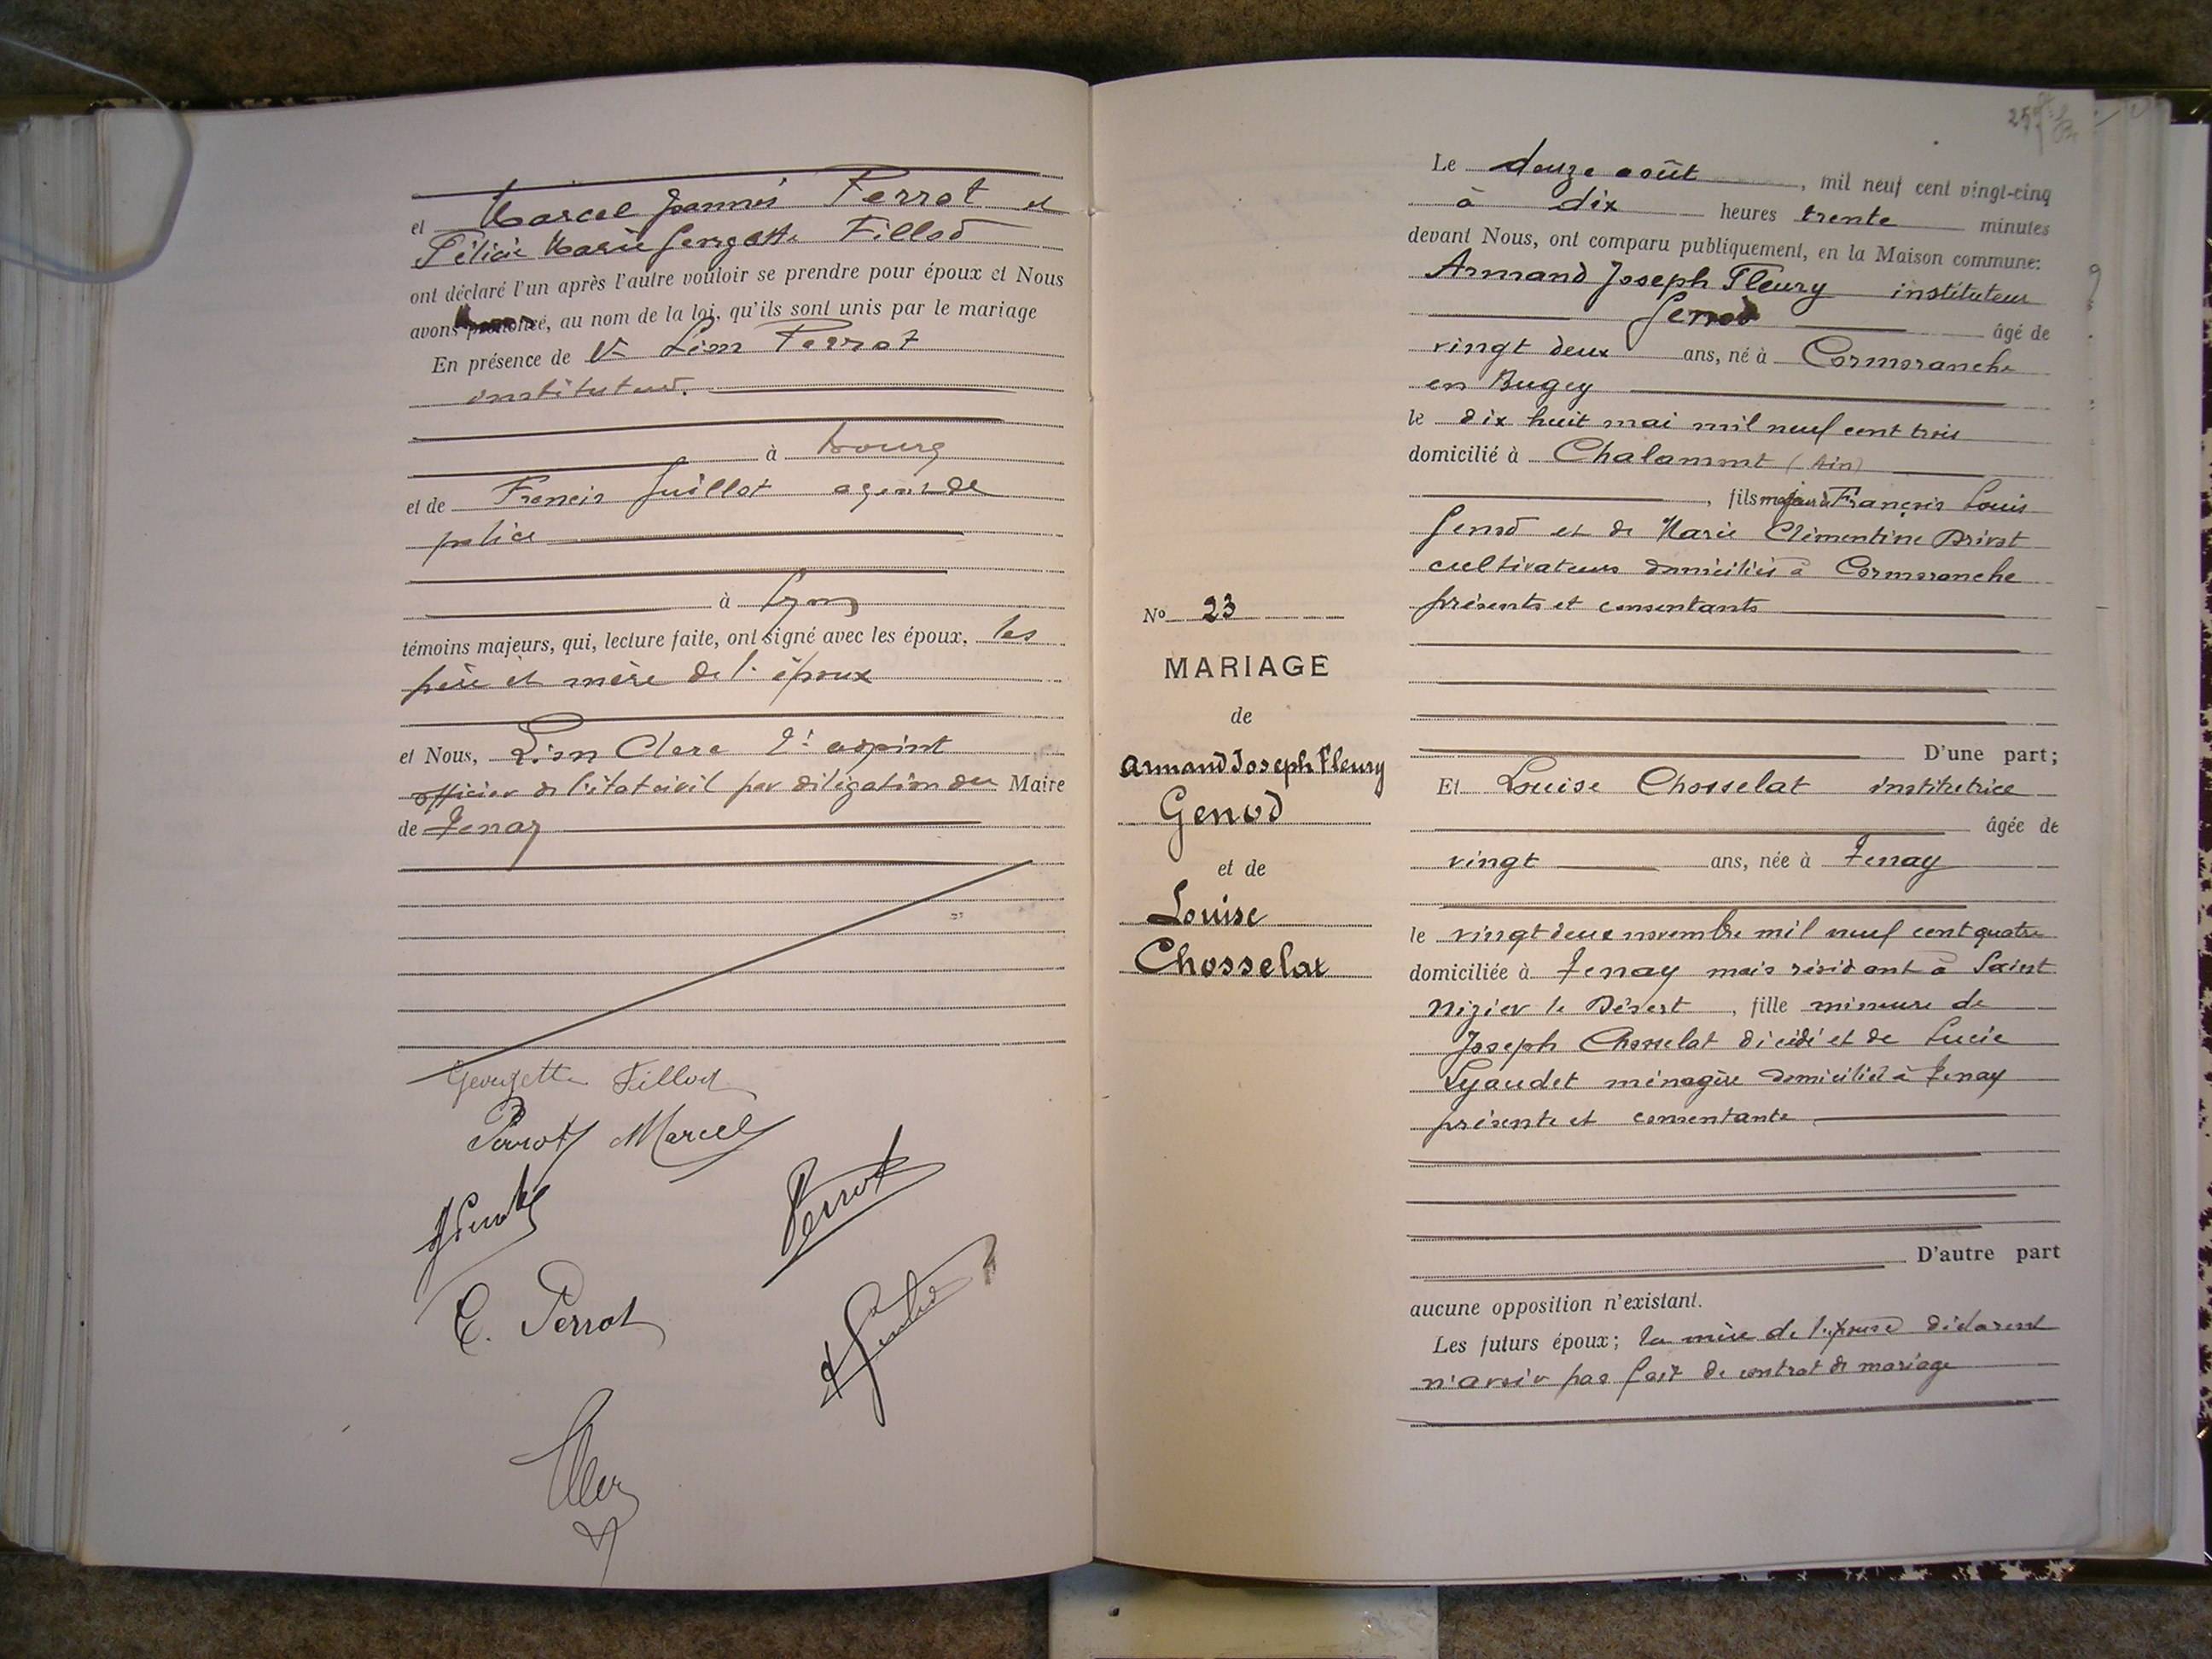 et Marcel Joannès Perrot et
Félicie Marie Georgette Fillod
ont déclaré l'un après l'autre vouloir se prendre pour époux et Nous
avons prononcé, au nom de la loi, qu'ils sont unis par le mariage
En présence de Léon Perrot
instituteur.
à bourg
et de Francis Guillot agent de
police
à Lyon
témoins majeurs, qui, lecture faite, ont signé avec les époux, les
père et mère de l'époux
et Nous, Léon Clerc adjoint
officier de l'état civil par délégation du Maire
de Tenay
Georgette Fillod
Perrot Marcel
Perrot
E. Perrot
Clerc
25
Le douze août, mil neuf cent vingt-cinq
à dix heures trente minutes
devant Nous, ont comparu publiquement, en la Maison commune:
Armand Joseph Fleury instituteur
Genod âgé de
vingt deux ans, né à Cormaranche
en Bugey
le dix huit mai mil neuf cent trois
domicilié à Chalamont (Ain)
, fils majeur de François Louis
Genod et de Marie Clémentine Drivat
cultivateurs domiciliés à Cormaranche
présents et consentants
D'une part;
Et Louise Chosselat institutrice
âgée de
vingt ans, née à Tenay
le vingt deux novembre mil neuf cent quatre
domiciliée à Tenay mais résidant à Saint
Nizier le Désert, fille mineure de
Joseph Chosselat décédé et de Lucie
Lyaudet ménagère domiciliée à Tenay
présente et consentante
D'autre part
aucune opposition n'existant.
Les futurs époux; la mère de l'épouse déclarent
n'avoir pas fait de contrat de mariage
No 23
MARIAGE
de
Armand Joseph Fleury
Genod
et de
Louise
Chosselat